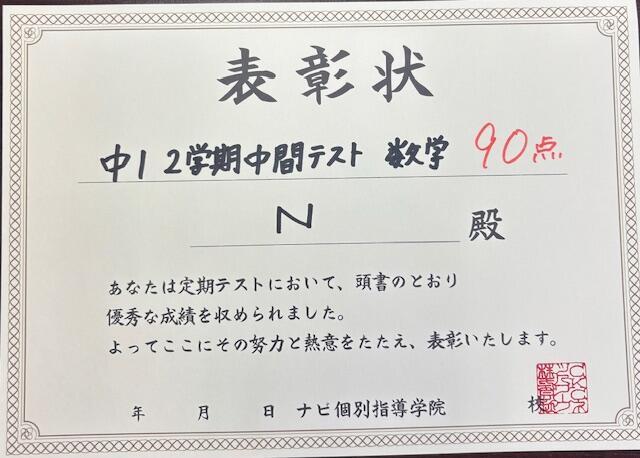 表彰状
中1 2学期中間テスト 数学 90点
N 殿
あなたは定期テストにおいて、頭書のとおり
優秀な成績を収められました。
よってここにその努力と熱意をたたえ、表彰いたします。
年 月 日 ナビ個別指導学院 校